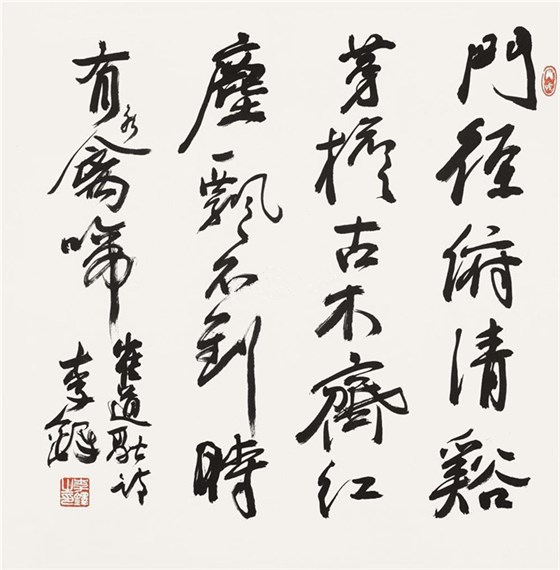 門徑俯清谿
茅檐古木齊紅
塵飄不到時
有水禽啼
崔道融詩
李鐸
李鐸之印